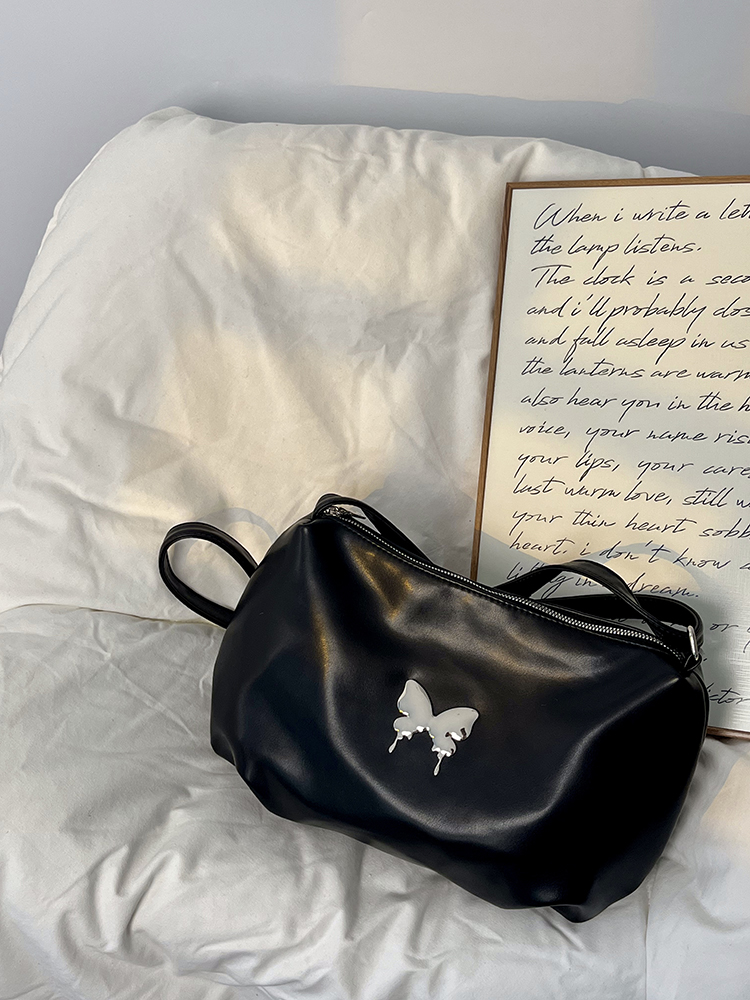 When i write a let
the lamp listens.
The clock is a seco
and i'll probably dos
and fall asleep in us
the lanterns are warm
also hear you in the h
voice, your name ris
your lips, your care
last warm love, still w
your thin heart sobb
heart. i don't know a
in dream.
or
stor